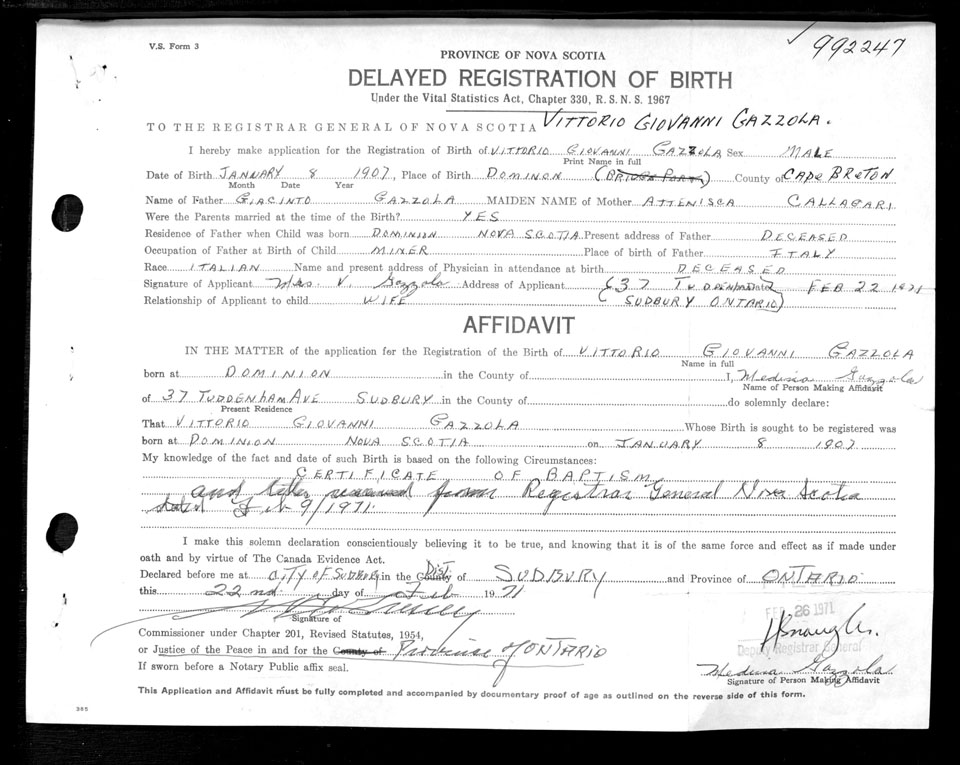 V.S. Form 3
992247
PROVINCE OF NOVA SCOTIA
DELAYED REGISTRATION OF BIRTH
Under the Vital Statistics Act, Chapter 330, R.S.N.S. 1967
TO THE REGISTRAR GENERAL OF NOVA SCOTIA VITTORIO GIOVANNI GAZZOLA.
I hereby make application for the Registration of Birth of VITTORIO GIOVANNI GAZZOLA Sex MALE
Print Name in full
Date of Birth JANUARY 8 1907, Place of Birth DOMINON (BRIDGEPORT) County of CAPE BRETON
Month Date Year
Name of Father GIACINTO GAZZOLA MAIDEN NAME of Mother ATTENISCA CALLAGARI
Were the Parents married at the time of the Birth? YES
Residence of Father when Child was born DOMINION NOVA SCOTIA Present address of Father DECEASED
Occupation of Father at Birth of Child MINER Place of birth of Father ITALY
Race ITALIAN Name and present address of Physician in attendance at birth DECEASED
Signature of Applicant Mrs. V. Gazzola Address of Applicant (37 TUDDENHAM Date FEB 22 1971
Relationship of Applicant to child WIFE (SUDBURY ONTARIO)
AFFIDAVIT
IN THE MATTER of the application for the Registration of the Birth of VITTORIO GIOVANNI GAZZOLA
Name in full
born at DOMINION in the County of I, Gazzola
Name of Person Making Affidavit
of 37 TUDDENHAM AVE SUDBURY in the County of do solemnly declare:
Present Residence
That VITTORIO GIOVANNI GAZZOLA Whose Birth is sought to be registered was
born at DOMINION NOVA SCOTIA on JANUARY 8 1907
My knowledge of the fact and date of such Birth is based on the following Circumstances:
CERTIFICATE OF BAPTISM
and letter received from Registrar General Nova Scotia
dated Feb 9/1971.
I make this solemn declaration conscientiously believing it to be true, and knowing that it is of the same force and effect as if made under
oath and by virtue of The Canada Evidence Act.
Declared before me at CITY OF SUDBURY in the County Dist. of SUDBURY and Province of ONTARIO
this 22nd day of Feb 1971
FEB 26 1971
Signature of
Commissioner under Chapter 201, Revised Statutes, 1954,
Deputy Registrar General
or Justice of the Peace in and for the County of Province of ONTARIO
If sworn before a Notary Public affix seal.
Gazzola
Signature of Person Making Affidavit
This Application and Affidavit must be fully completed and accompanied by documentary proof of age as outlined on the reverse side of this form.
385